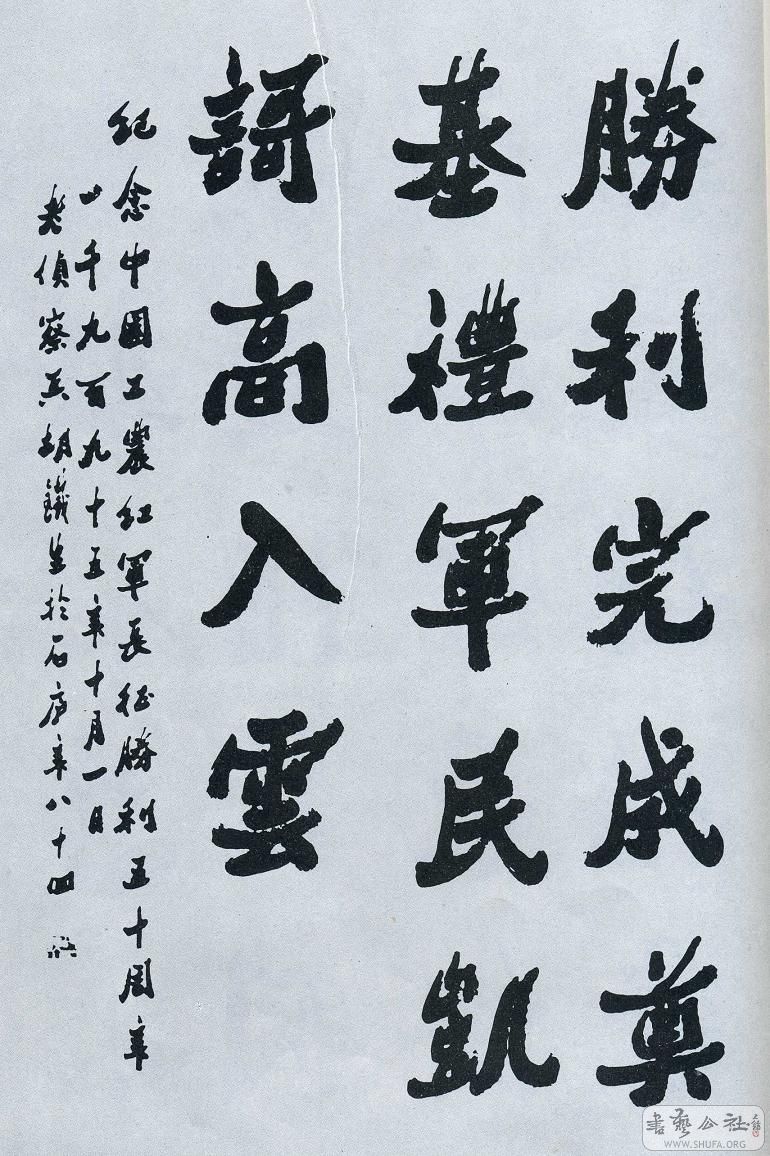 勝利完成奠
基禮軍民凱
謌高入雲
紀念中國工農紅軍長征勝利五十周年
一千九百九十五年十月一日
老偵察兵胡鐵生於石庐年八十四
書藝公社
WWW.SHUFA.ORG